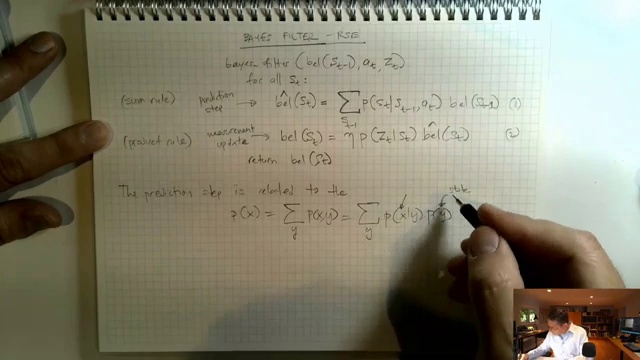 BAYES FILTER - RSE
bayes filter (bel(S_{t-1}), a_t, z_t)
for all S_t:
(sum rule) prediction step → \hat{bel}(S_t) = Σ_{S_{t-1}} p(S_t|S_{t-1}, a_t) bel(S_{t-1}) (1)
(product rule) measurement update → bel(S_t) = η p(z_t|S_t) \hat{bel}(S_t) (2)
return bel(S_t)
The prediction step is related to the
state
p(x) = Σ_y p(x,y) = Σ_y p(x|y) p(y)